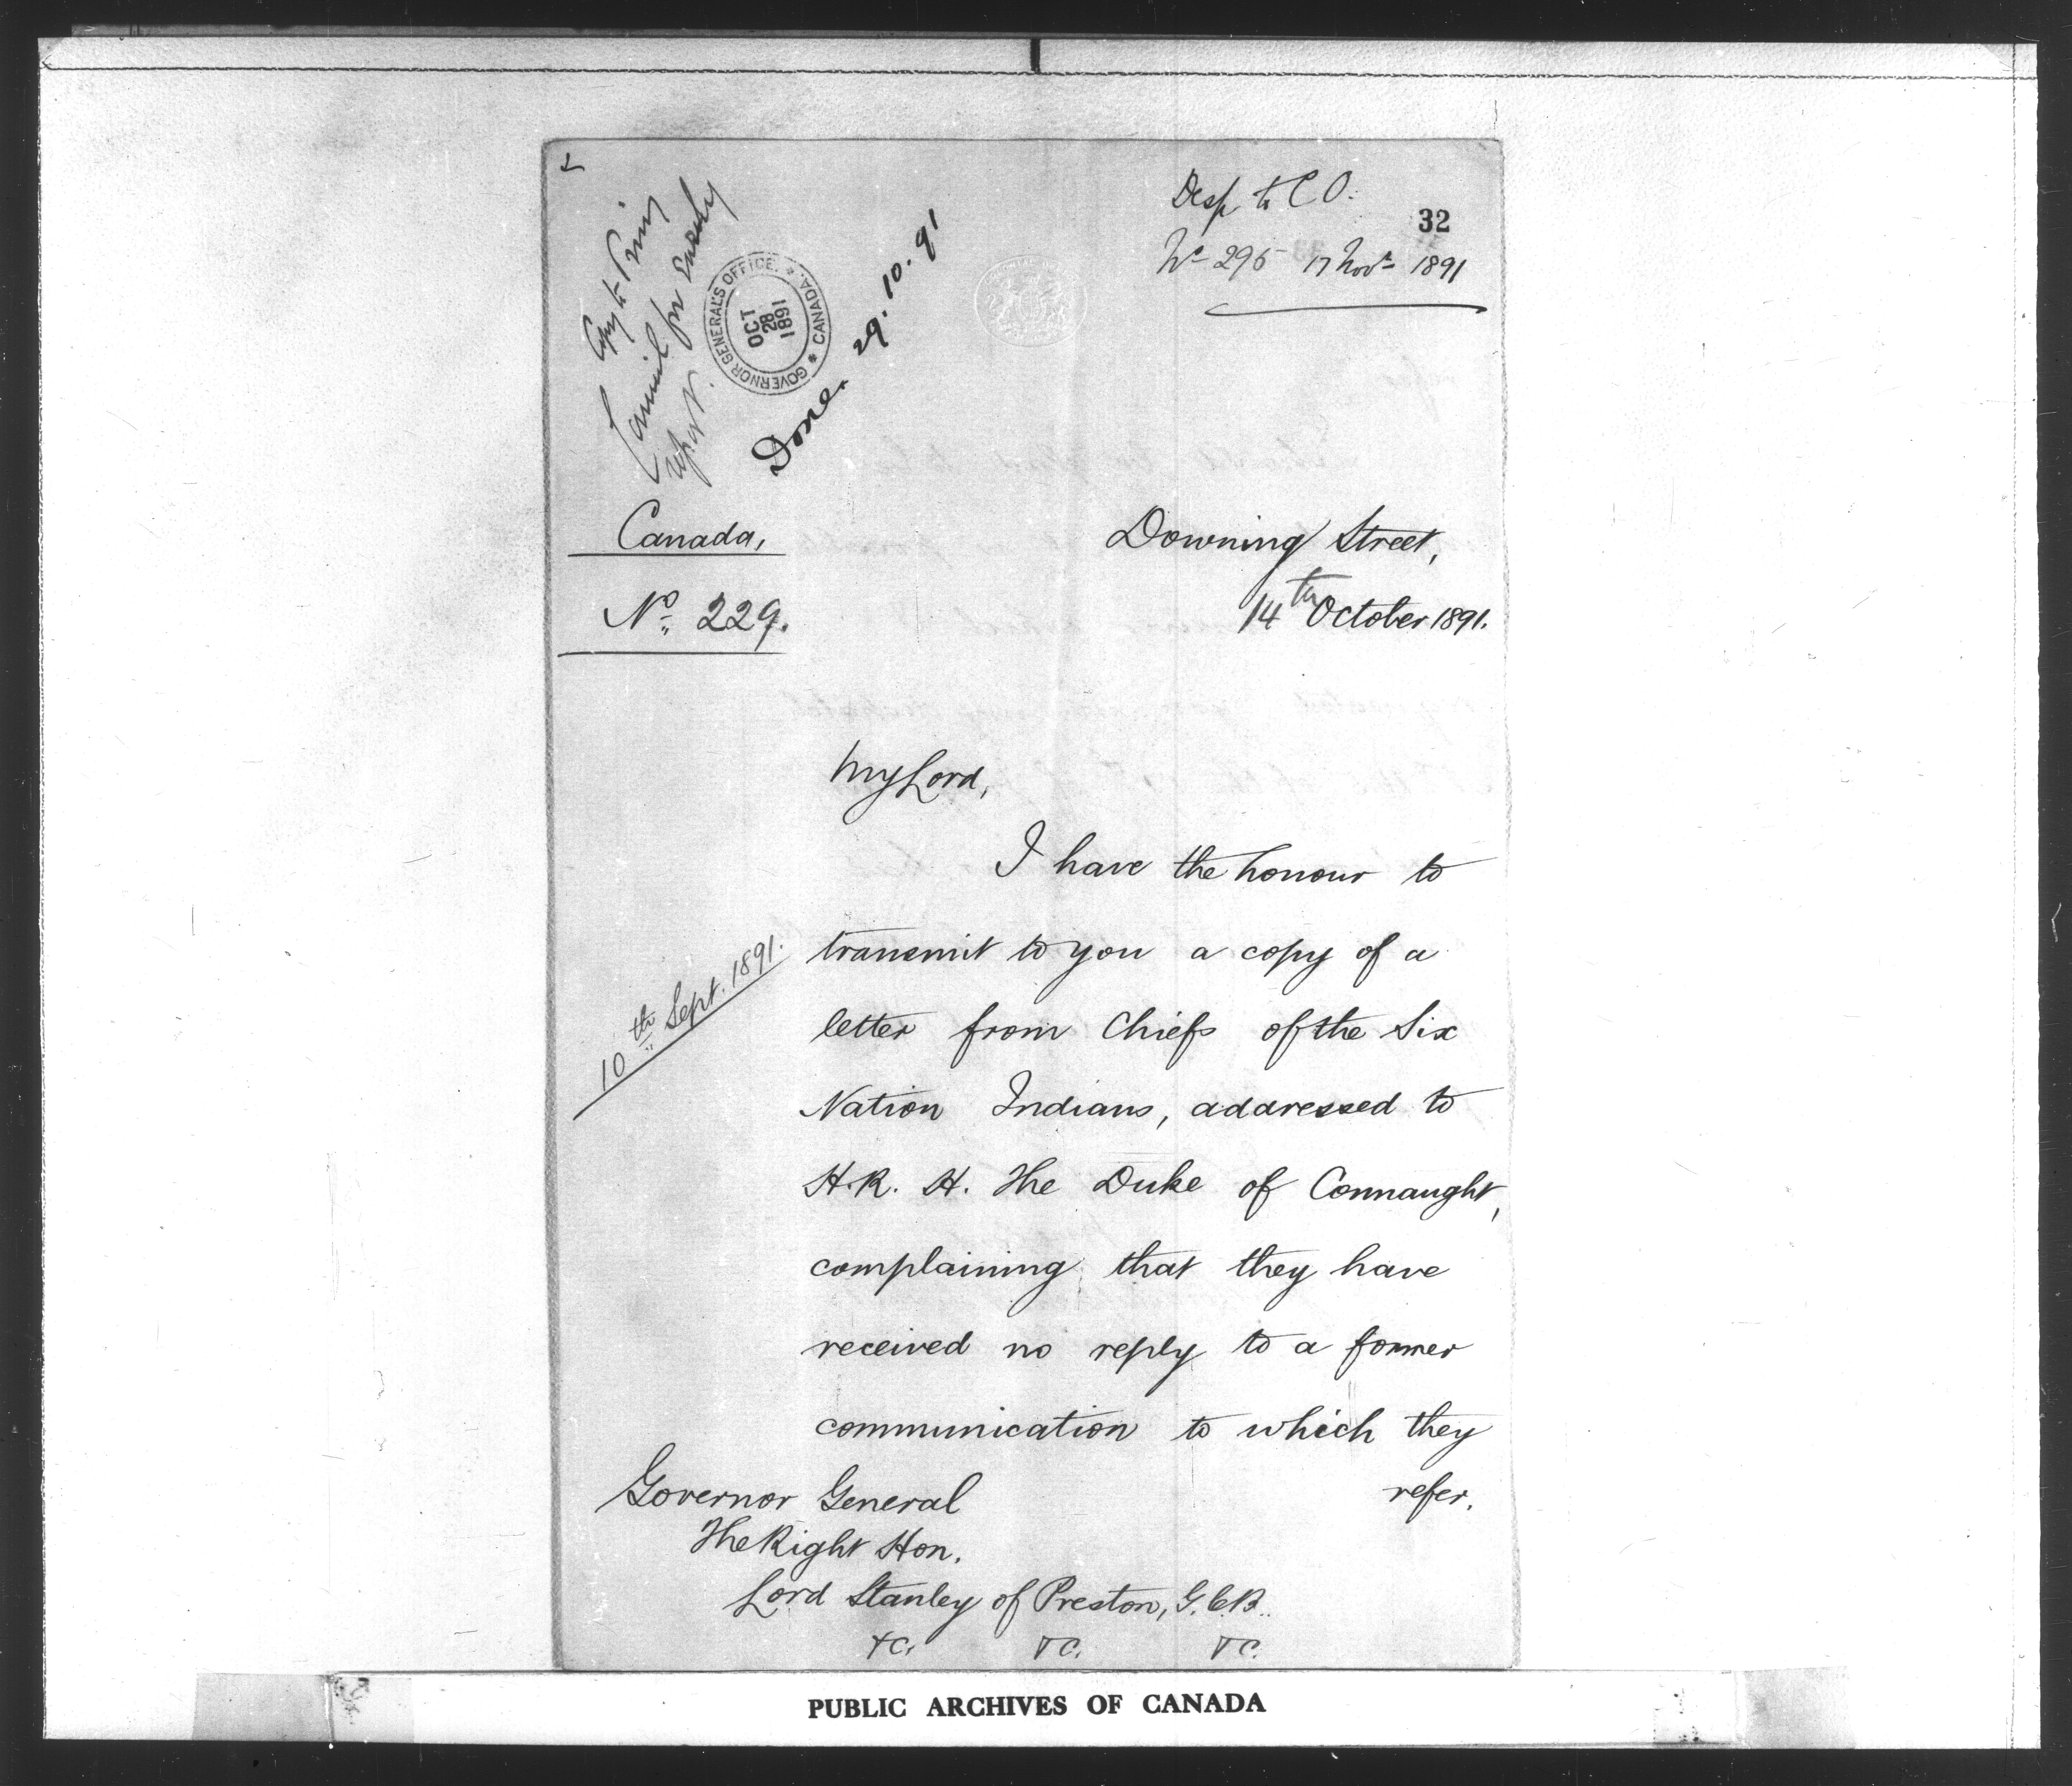 Desp. to C.O.
32
No 295 17 Novr 1891
Copy to Privy
Council for Early
report.
GOVERNOR GENERAL'S OFFICE. * CANADA. *
OCT
28
1891
Done. 29.10.91
Canada,
No. 229.
Downing Street,
14th October 1891.
My Lord,
I have the honour to
transmit to you a copy of a
10th Sept. 1891.
letter from Chiefs of the Six
Nation Indians, addressed to
H.R.H. The Duke of Connaught,
complaining that they have
received no reply to a former
communication to which they
refer.
Governor General
The Right Hon.
Lord Stanley of Preston, G.C.B.
&c. &c. &c.
PUBLIC ARCHIVES OF CANADA